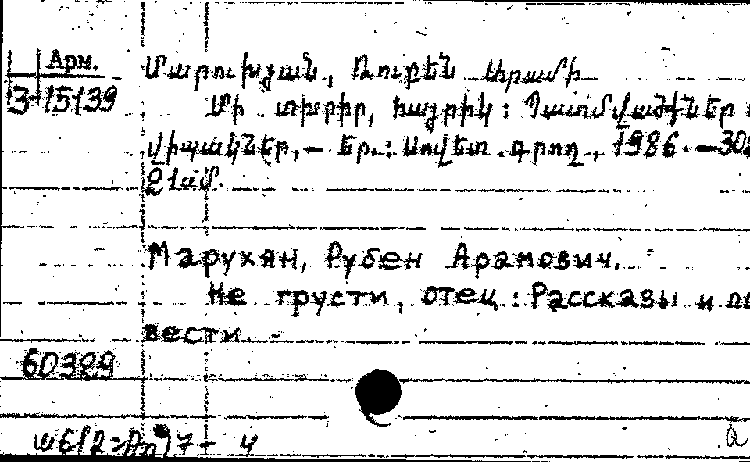 Арм.
Մարուխյան, Ռուբեն Արամի
3-15139
Մի տխրիր, հայրիկ: Պատմվածքներ
վիպակներ, – Եր.: Սովետ. գրող, 1986. – 308
21սմ.
Марухян, Рубен Арамович.
Не грусти, отец: Рассказы и по
вести. -
60389